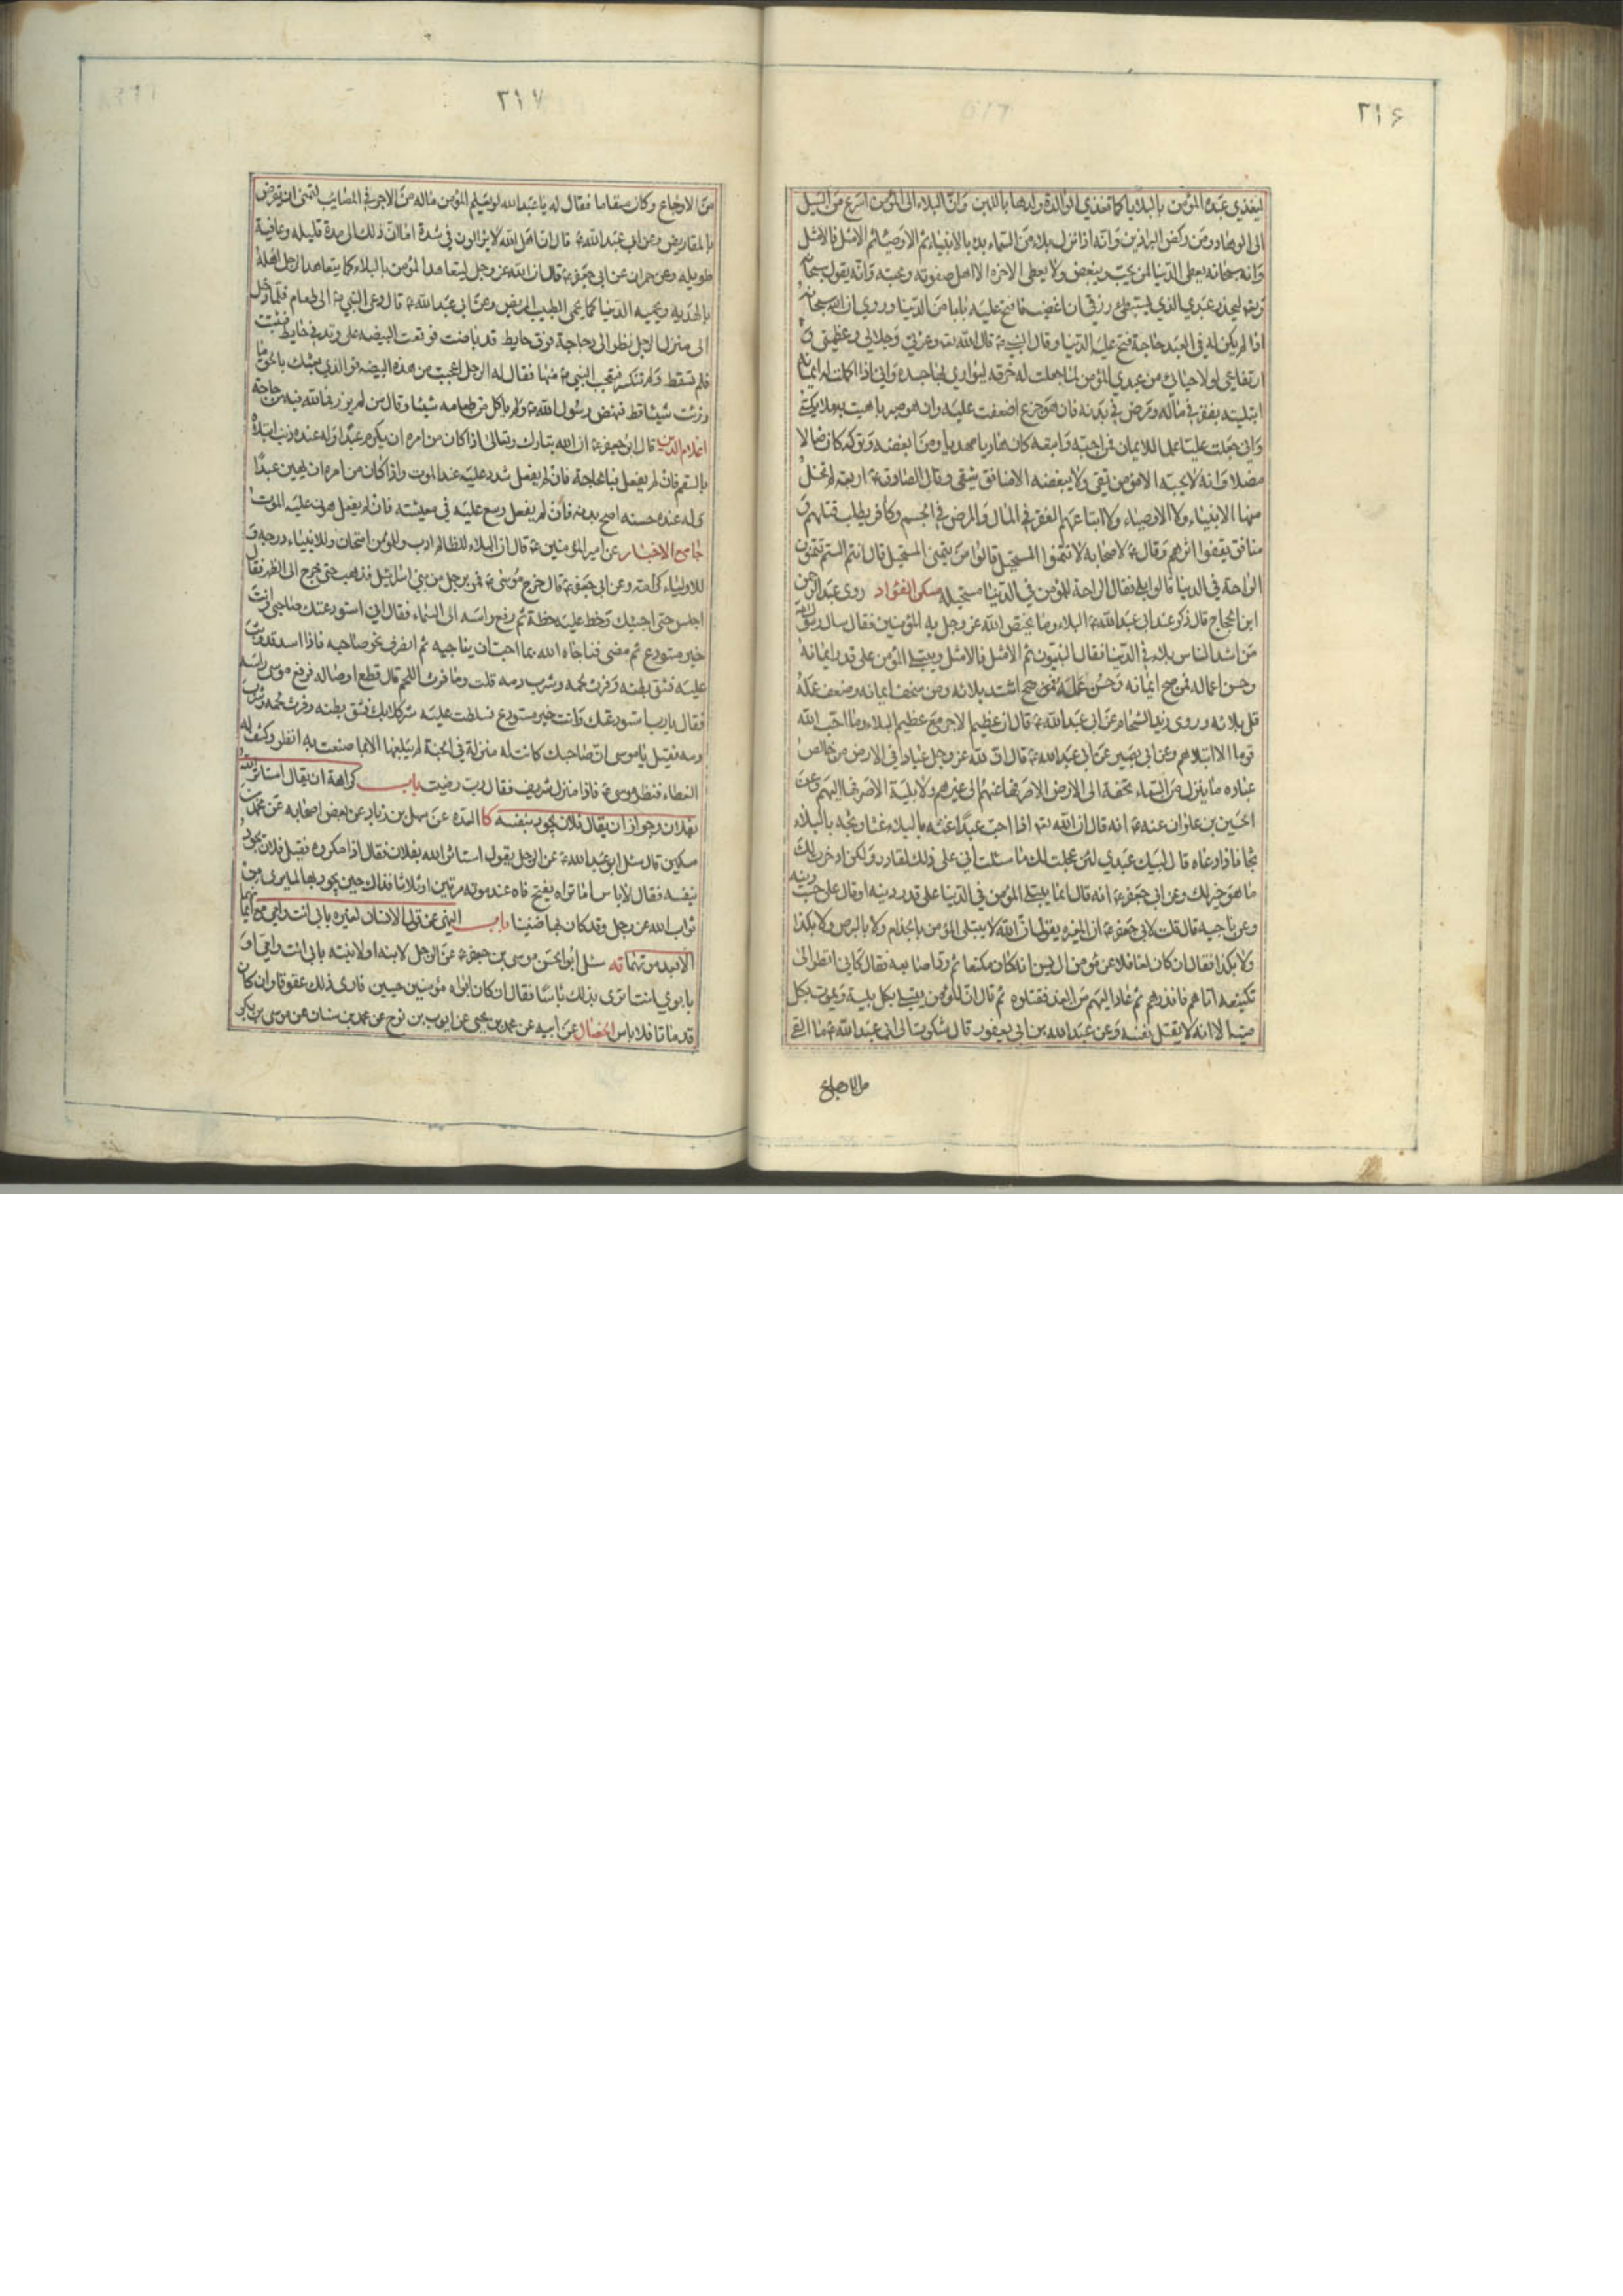 ٢١۶
ليغذي عبده المؤمن بالبلايا كما تغذي الوالدة ولدها باللبن وان البلاء الى المؤمن اسرع من السيل
الى الوهاد ومن ركض البراذين وانه اذا نزل بلاء من السماء بدء بالانبياء ثم الاوصياء ثم الامثل فالامثل
وانه سبحانه يعطى الدنيا لمن يحب ويبغض ولا يعطى الاخرة الا اهل صفوته ومحبته وانه يقول سبحانه
ليحذر عبدي الذي يستبطئ رزقي ان اغضب فافتح عليه بابا من الدنيا وروي ان الله سبحانه
اذا لم يكن له في العبد حاجة فتح عليه الدنيا وقال النبي قال الله وعزتي وجلالي وعظمتي و
ارتفاعي لولا حيائي من عبدي المؤمن لما جعلت له خرقة ليواري بها جسده واني اذا اكملت له ايمانه
ابتليته بفقر في ماله ومرض في بدنه فان هو جزع اضعفت عليه وان هو صبر باهيت به ملائكتي
واني جعلت عليا علما للايمان فمن احبه واتبعه كان هاديا مهديا ومن ابغضه وتركه كان ضالا
مضلا وانه لا يحبه الا مؤمن تقي ولا يبغضه الا منافق شقي وقال الصادق اربعة لم تخل
منها الانبياء ولا الاوصياء ولا اتباعهم الفقر في المال والمرض في الجسم وكافر يطلب قتلهم و
منافق يقفوا اثرهم وقال لاصحابه لا تتمنوا المستحيل قالوا من يتمنى المستحيل قال انتم الستم تتمنون
الراحة في الدنيا قالوا بلى فقال الراحة للمؤمن في الدنيا مستحيله مسكن الفؤاد روى عبد الرحمن
ابن الحجاج قال ذكر عند ابي عبد الله البلاء وما يختص الله عز وجل به المؤمنين فقال سال رسول الله
من اشد الناس بلاء في الدنيا فقال النبيون ثم الامثل فالامثل ويبتلى المؤمن على قدر ايمانه
وحسن اعماله فمن صح ايمانه وحسن عمله اشتد بلائه ومن سخف ايمانه وضعف عمله
قل بلائه وروى زيد الشحام عن ابي عبد الله قال ان عظيم الاجر مع عظيم البلاء وما احب الله
قوما الا ابتلاهم وعن ابي بصير عن ابي عبد الله قال ان لله عز وجل عبادا في الارض من خالص
عباده ما ينزل من السماء تحفة الى الارض الا صرفها عنهم الى غيرهم ولا بلية الا صرفها اليهم وعن
الحسين بن علوان عنه انه قال ان الله اذا احب عبدا غته بالبلاء غتا وثجه بالبلاء
ثجا فاذا دعاه قال لبيك عبدي لئن عجلت لك ما سئلت اني على ذلك لقادر ولكن ادخرت لك
ما هو خير لك وعن ابي جعفر انه قال انما يبتلى المؤمن في الدنيا على قدر دينه او قال على حسب دينه
وعن ناجيه قال قلت لابي جعفر ان المغيرة يقول ان الله لا يبتلى المؤمن بالجذام ولا بالبرص ولا بكذا
ولا بكذا فقال ان كان لغافلا عن مؤمن ال يس انه كان مكنعا ثم رد اصابعه فقال كاني انظر الى
تكنيعه اتاهم فانذرهم ثم عاد اليهم من الغد فقتلوه ثم قال ان المؤمن يبتلى بكل بلية ويموت بكل
ميتة الا انه لا يقتل نفسه وعن عبد الله بن ابي يعفور قال شكوت الى ابي عبد الله ما القى
من الاوجاع
٢١٧
من الاوجاع وكان مسقاما فقال له يا عبد الله لو يعلم المؤمن ماله من الاجر في المصايب لتمنى ان يقرض
بالمقاريض وعن ابي عبد الله قال ان اهل الله لا يزالون في شدة اما ان ذلك الى مدة قليله وعافية
طويله وعن حمران عن ابي جعفر قال ان الله عز وجل ليتعاهد المؤمن بالبلاء كما يتعاهد الرجل اهله
بالهديه ويحميه الدنيا كما يحمى الطبيب المريض وعن ابي عبد الله قال دعى النبي الى طعام فلما دخل
الى منزل الرجل نظر الى دجاجة فوق حايط قد باضت فوقعت البيضه على وتد في حايط فثبتت
فلم تسقط ولم تنكسر فتعجب النبي منها فقال له الرجل اعجبت من هذه البيضه فو الذي بعثك بالحق ما
رزئت شيئا قط فنهض رسول الله ولم ياكل من طعامه شيئا وقال من لم يرزء فما لله فيه من حاجة
اعلام الدين قال ابو جعفر ان الله تبارك وتعالى اذا كان من امره ان يكرم عبدا وله عنده ذنب ابتلاه
بالسقم فان لم يفعل فبالحاجة فان لم يفعل شدد عليه عند الموت واذا كان من امره ان يهين عبدا
وله عنده حسنه اصح بدنه فان لم يفعل وسع عليه في معيشته فان لم يفعل هون عليه الموت
جامع الاخبار عن امير المؤمنين قال ان البلاء للظالم ادب وللمؤمن امتحان وللانبياء درجه و
للاولياء كرامة وعن ابي جعفر قال خرج موسى فمر برجل من بني اسرائيل فذهب حتى خرج الى الظهر فقال
اجلس حتى اجيئك وخط عليه خطة ثم رفع راسه الى السماء فقال اني استودعتك صاحبي وانت
خير مستودع ثم مضى فناجاه الله بما احب ان يناجيه ثم انصرف نحو صاحبه فاذا اسد قد وثب
عليه فشق بطنه وفرث لحمه وشرب دمه قلت وما فرث اللحم قال قطع اوصاله فرفع موسى راسه
فقال يا رب استودعتك وانت خير مستودع فسلطت عليه شر كلابك فشق بطنه وفرث لحمه وشرب
دمه فقيل يا موسى ان صاحبك كانت له منزلة في الجنة لم يبلغها الا بما صنعت به انظر وكشف له
الغطاء فنظر موسى فاذا منزل شريف فقال رب رضيت باب كراهة ان يقال استاثر الله
بفلان وجواز ان يقال فلان يجود بنفسه كا العدة عن سهل بن زياد عن بعض اصحابه عن محمد بن
مسكين قال سئل ابو عبد الله عن الرجل يقول استاثر الله بفلان فقال ذا مكروه فقيل فلان يجود
بنفسه فقال لا باس اما تراه يفتح فاه عند موته مرتين او ثلاثا فذلك حين يجود بها لما يرى من
ثواب الله عز وجل وقد كان بها ضنينا باب النهي عن قول الانسان لغيره بابي انت وامي مع ايمانهما
الا بعد موتهما يه سئل ابو الحسن موسى بن جعفر عن الرجل لابنه او لابنته بابي انت وامي او
بابوي انت اترى بذلك باسا فقال ان كان ابواه مؤمنين حيين فارى ذلك عقوقا وان كان
قد ماتا فلا باس الخصال عن ابيه عن محمد بن يحيى عن ايوب بن نوح عن محمد بن سنان عن موسى بن بكر